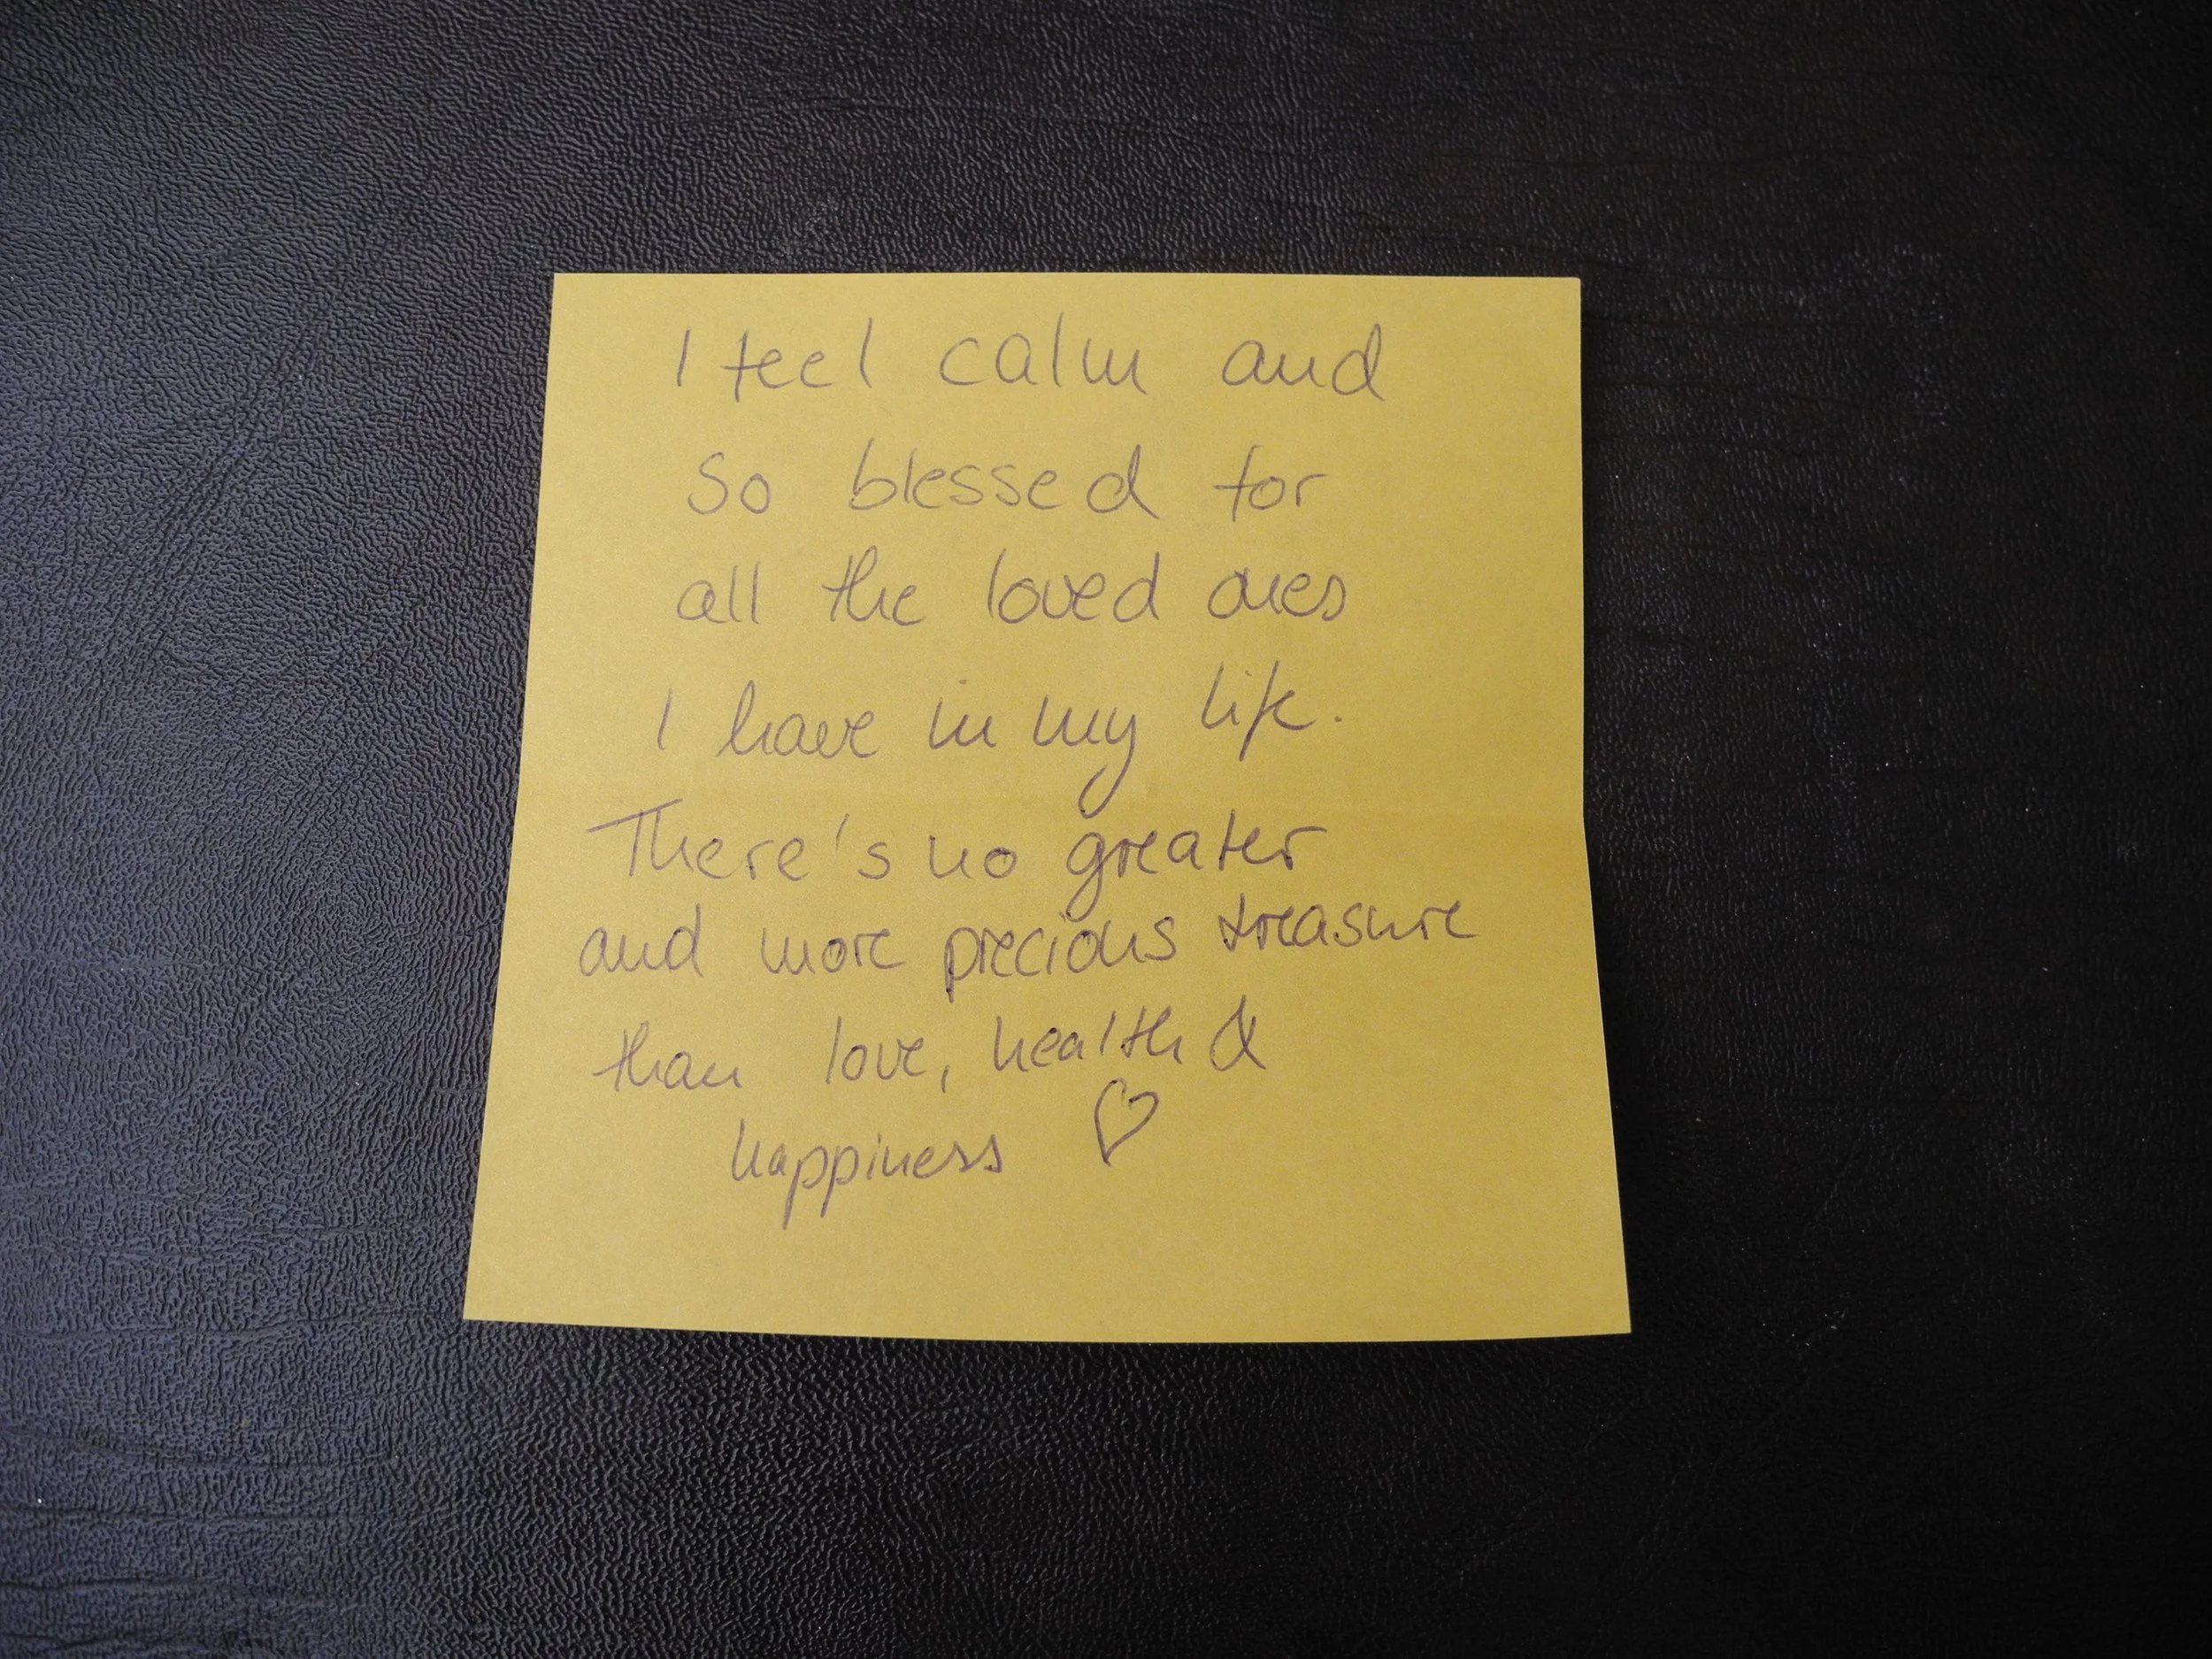 I feel calm and
so blessed for
all the loved ones
I have in my life.
There's no greater
and more precious treasure
than love, health &
happiness ♡